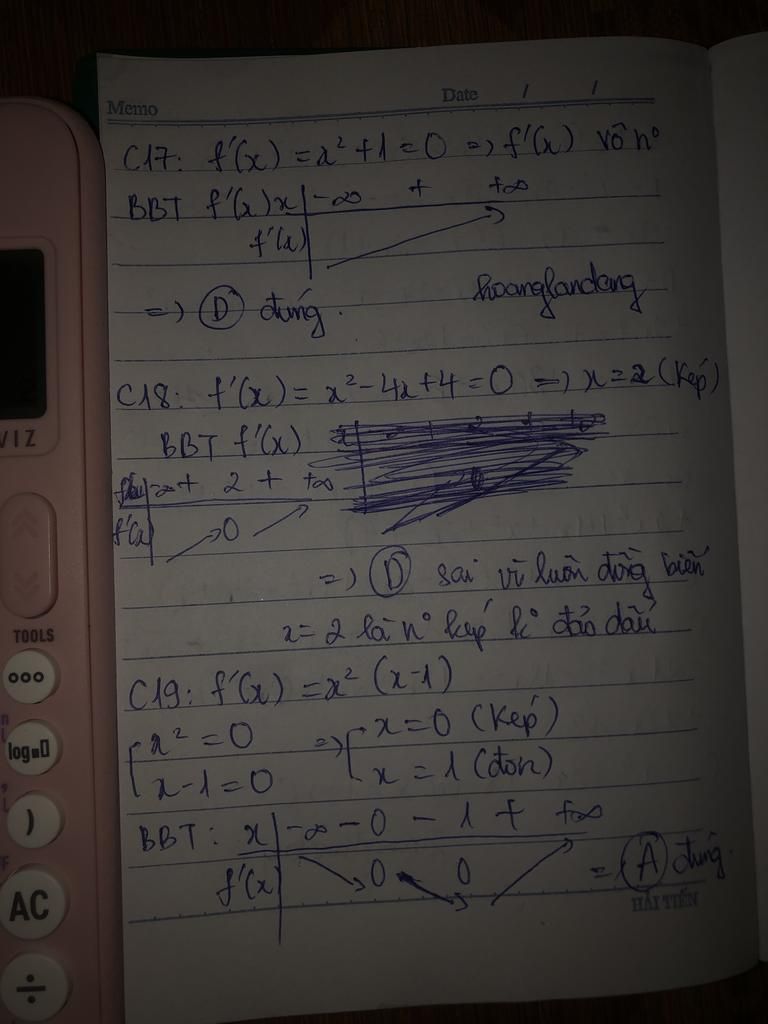 Memo
Date / /
C17: f'(x) = x² + 1 = 0 => f'(x) vô n°
BBT f'(x) x | -∞ + +∞
f'(x)
=> D đúng.
hoanglandang
C18: f'(x) = x² - 4x + 4 = 0 => x = 2 (kép)
BBT f'(x)
-∞ + 2 + +∞
f'(x) 0
=> D sai vì luôn đồng biến
x = 2 là n° kép k° đảo dấu
C19: f'(x) = x² (x-1)
x² = 0 => x = 0 (kép)
x - 1 = 0 x = 1 (đơn)
BBT: x | -∞ - 0 - 1 + +∞
f'(x) 0 0 => A đúng.
HẢI TIẾN
VIZ
TOOLS
log
)
AC
÷